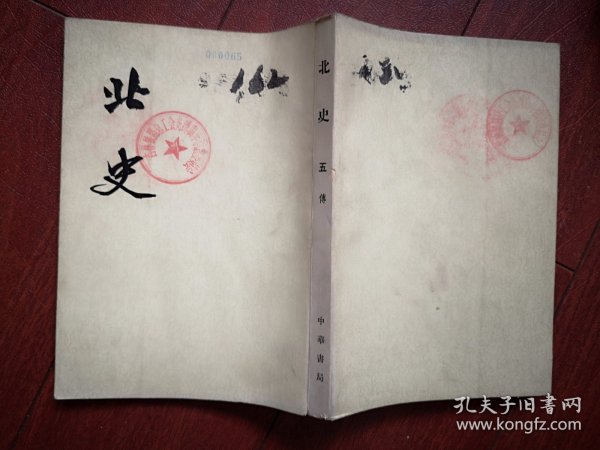 000065
北史
北史 五 傳
中華書局
孔夫子旧書网
www.kongfz.com